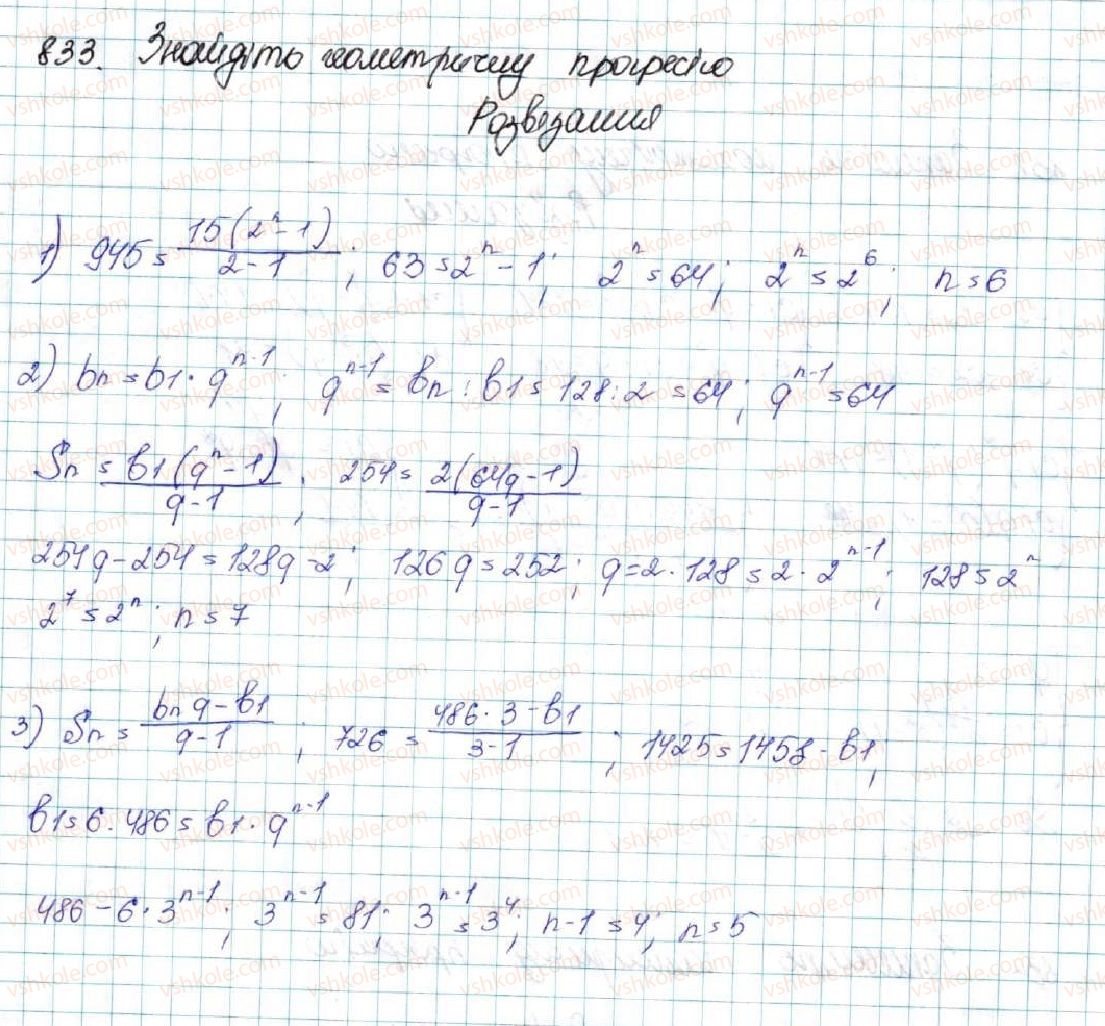 833. Знайдіть геометричну прогресію
Розвезання
1) 945 = 15(2^n - 1) / 2 - 1; 63 = 2^n - 1; 2^n = 64; 2^n = 2^6; n = 6
2) bn = b1 · q^n-1; q^n-1 = bn : b1 = 128 : 2 = 64; q^n-1 = 64
Sn = b1(q^n - 1) / q - 1; 254 = 2(64q - 1) / q - 1
254q - 254 = 128q - 2; 126q = 252; q = 2 · 128 = 2 · 2^n-1; 128 = 2^n
2^7 = 2^n; n = 7
3) Sn = bn q - b1 / q - 1; 726 = 486 · 3 - b1 / 3 - 1; 1425 = 1458 - b1;
b1 = 6. 486 = b1 · q^n-1
486 - 6 · 3^n-1; 3^n-1 = 81; 3^n-1 = 3^4; n - 1 = 4; n = 5
vshkole.com